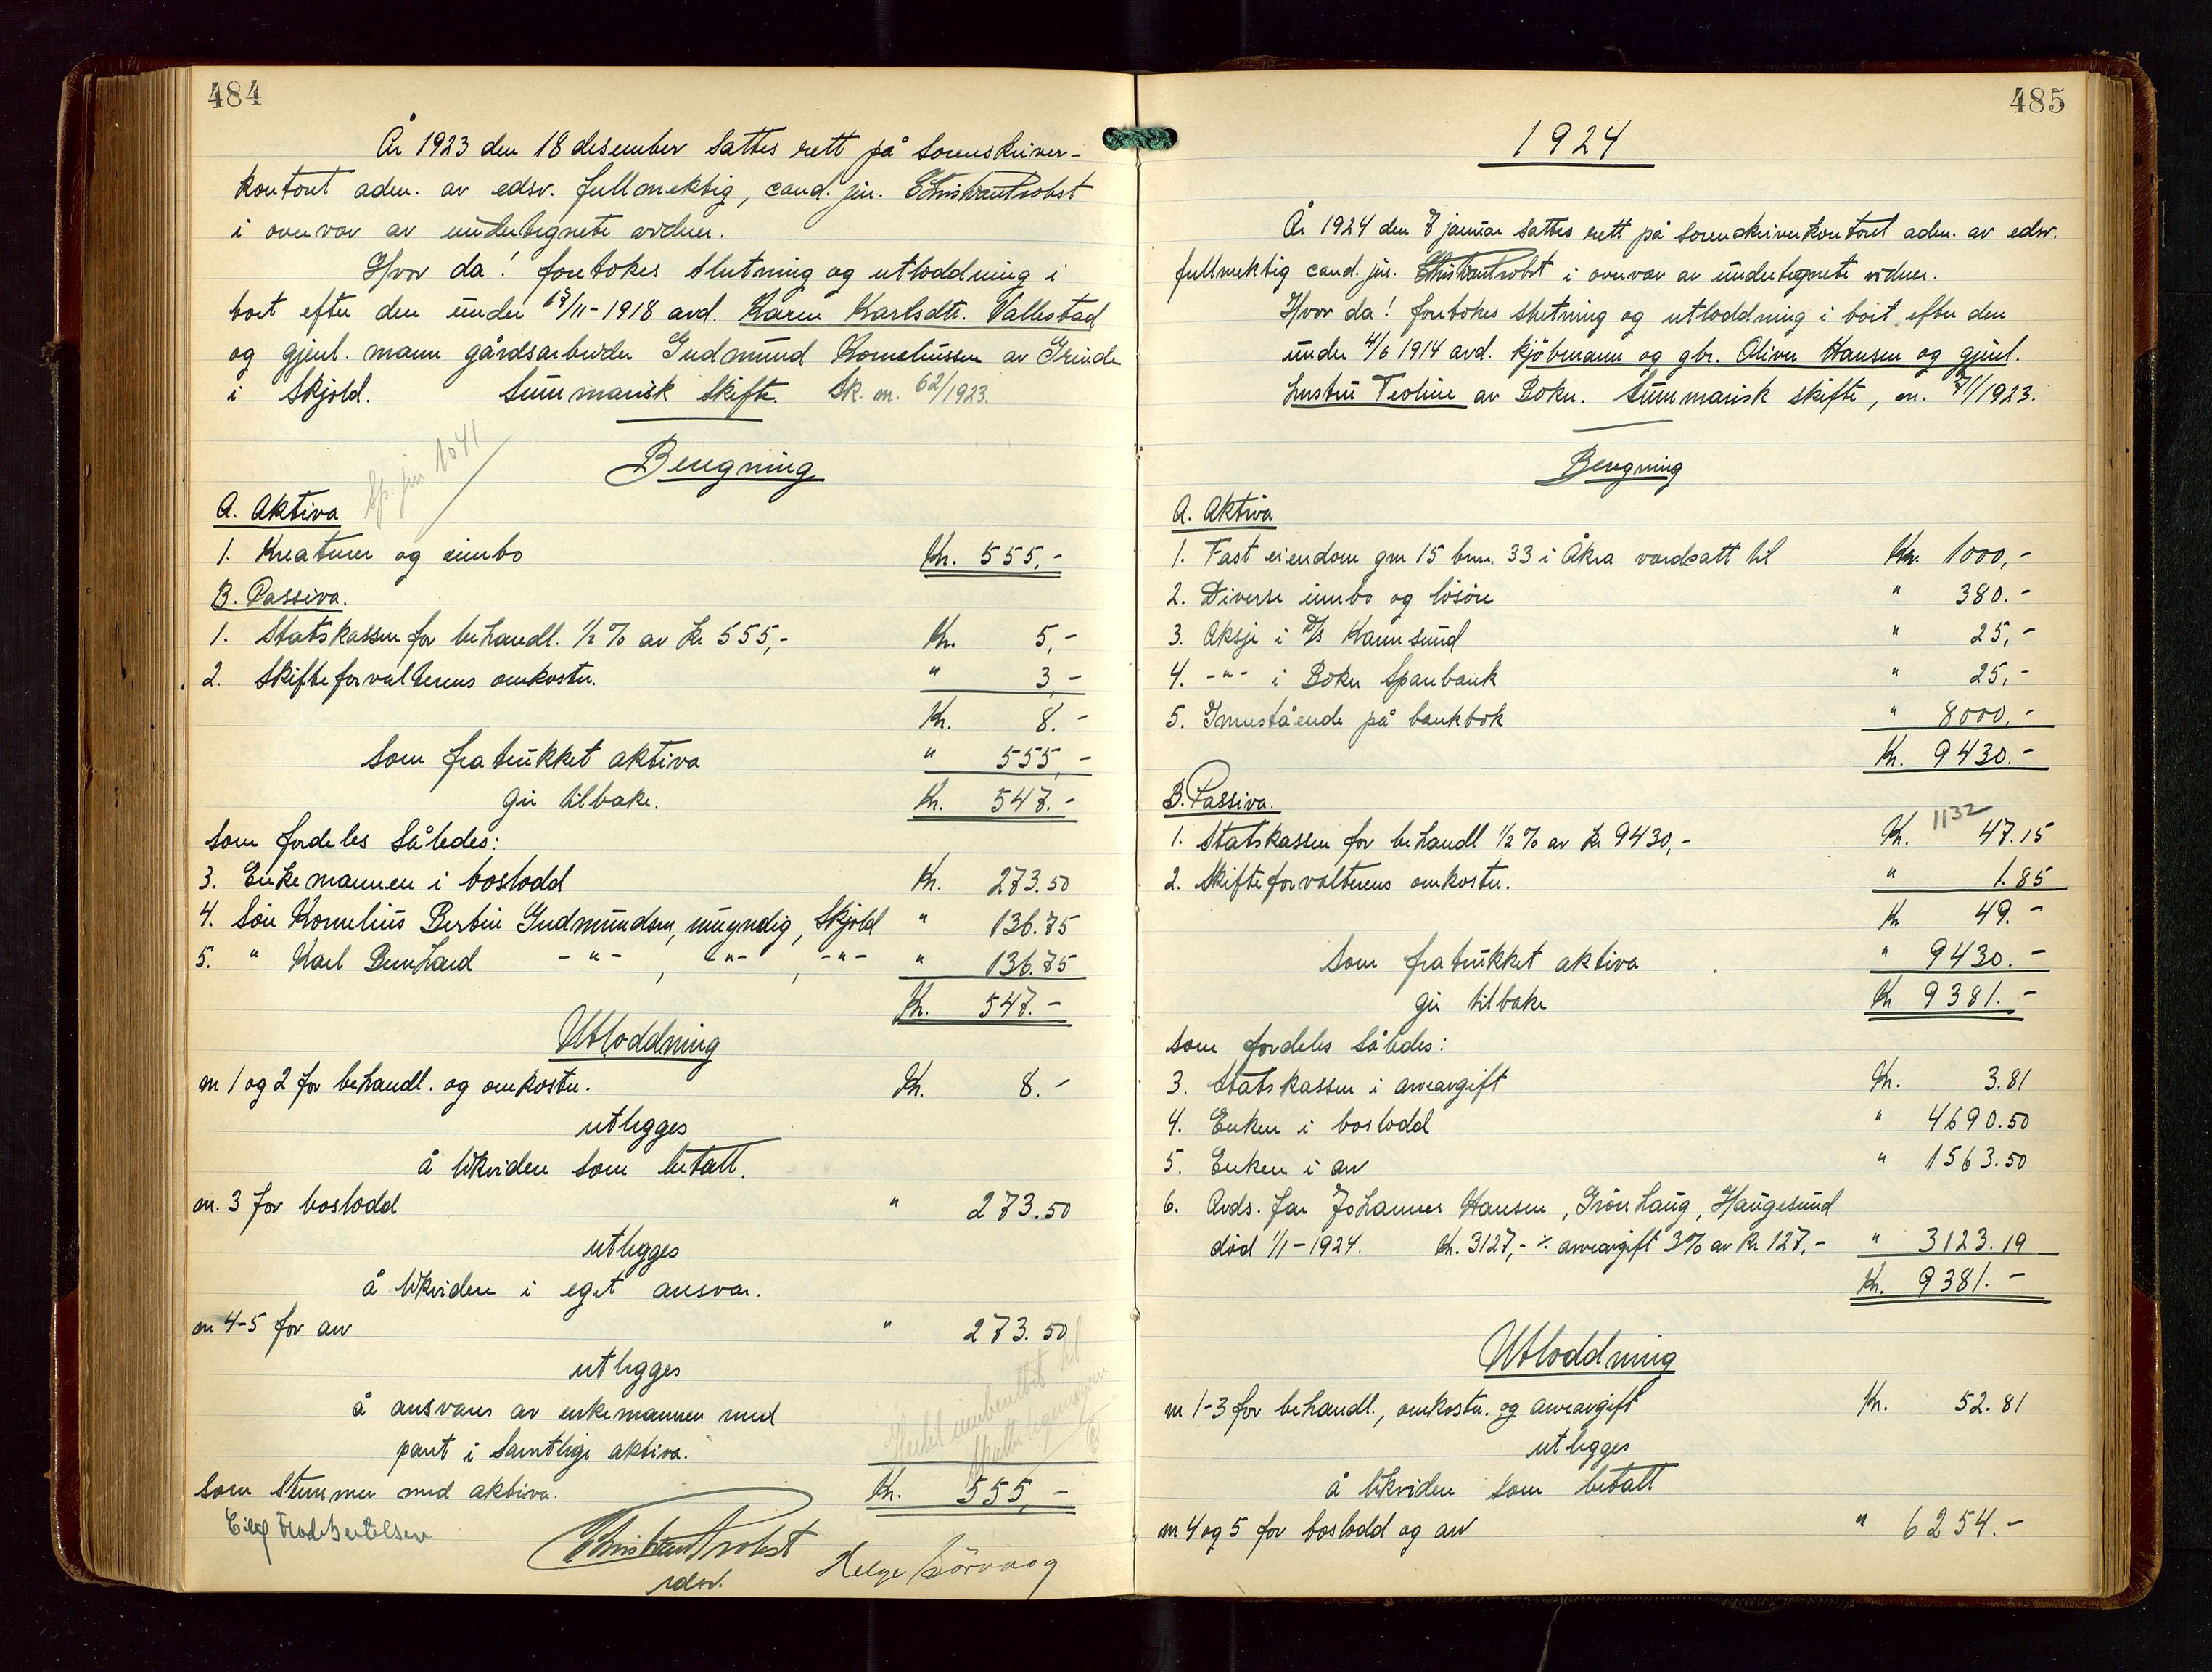 484
År 1923 den 18 desember sattes rett på sorenskriver-
kontoret adm. av edsv. fullmektig, cand. jur. Christian Probst
i overvær av undertegnete vidner.
Hvor da! foretokes slutning og utloddning i
boet efter den under /11-1918 avd. Karen Karlsdtr. Vallestad
og gjenl. mann gårdsarbeider Gudmund Korneliussen av Grinde
i Skjold. Summarisk skifte. Sk. nr. 62/1923.
Beregning
A. Aktiva
1. Kreaturer og innbo Kr. 555,-
B. Passiva.
1. Statskassen for behandl. ½ % av kr 555,- Kr. 5,-
2. Skifteforvalterens omkostn. " 3,-
Kr. 8.-
som fratrukket aktiva " 555,-
gir tilbake. Kr. 547.-
som fordeles således:
3. Enkemannen i boslodd Kr. 273.50
4. Søn Kornelius Bertin Gudmundsen, umyndig, Skjold " 136.75
5. " Karl Bernhard -"- , -"- , -"- " 136.75
Kr. 547.-
Utloddning
nr 1 og 2 for behandl. og omkostn. Kr. 8.-
utlegges
å likviden som betalt.
nr. 3 for boslodd " 273.50
utlegges
å likviden i eget ansvar.
nr 4-5 for arv " 273.50
utlegges
å ansvares av enkemannen med
pant i samtlige aktiva.
som stemmer med aktiva. Kr. 555,-
Christian Probst
edsv.
Helge Sörvaag
485
1924
År 1924 den 7 januar sattes rett på sorenskriverkontoret adm. av edsv.
fullmektig cand. jur. Christian Probst i overvær av undertegnete vidner.
Hvor da! foretokes slutning og utloddning i boet efter den
under 4/6 1914 avd. kjöbmann og gbr. Oliver Hansen og gjenl.
hustru Teoline av Bokn. Summarisk skifte, nr. 71/1923.
Beregning
A. Aktiva
1. Fast eiendom gnr 15 bnr. 33 i Åkra verdsatt til Kr. 1000,-
2. Diverse innbo og lösöre " 380.-
3. Aksje i D/S Karmsund " 25,-
4. -"- i Bokn Sparebank " 25,-
5. Innestående på bankbok " 8000,-
Kr. 9430.-
B. Passiva.
1132
1. Statskassen for behandl ½ % av kr 9430,- Kr. 47.15
2. Skifteforvalterens omkostn. " 1.85
Kr 49.-
som fratrukket aktiva " 9430.-
gir tilbake Kr 9381.-
som fordeles således:
3. Statskassen i arveavgift Kr. 3.81
4. Enken i boslodd " 4690.50
5. Enken i arv " 1563.50
6. Avds. far Johannes Hansen, Grönhaug, Haugesund
död 1/1-1924. Kr. 3127,- ÷ arveavgift 3% av kr 127,- " 3123.19
Kr. 9381.-
Utloddning
nr 1-3 for behandl., omkostn. og arveavgift Kr. 52.81
utlegges
å likviden som betalt
nr 4 og 5 for boslodd og arv " 6254.-